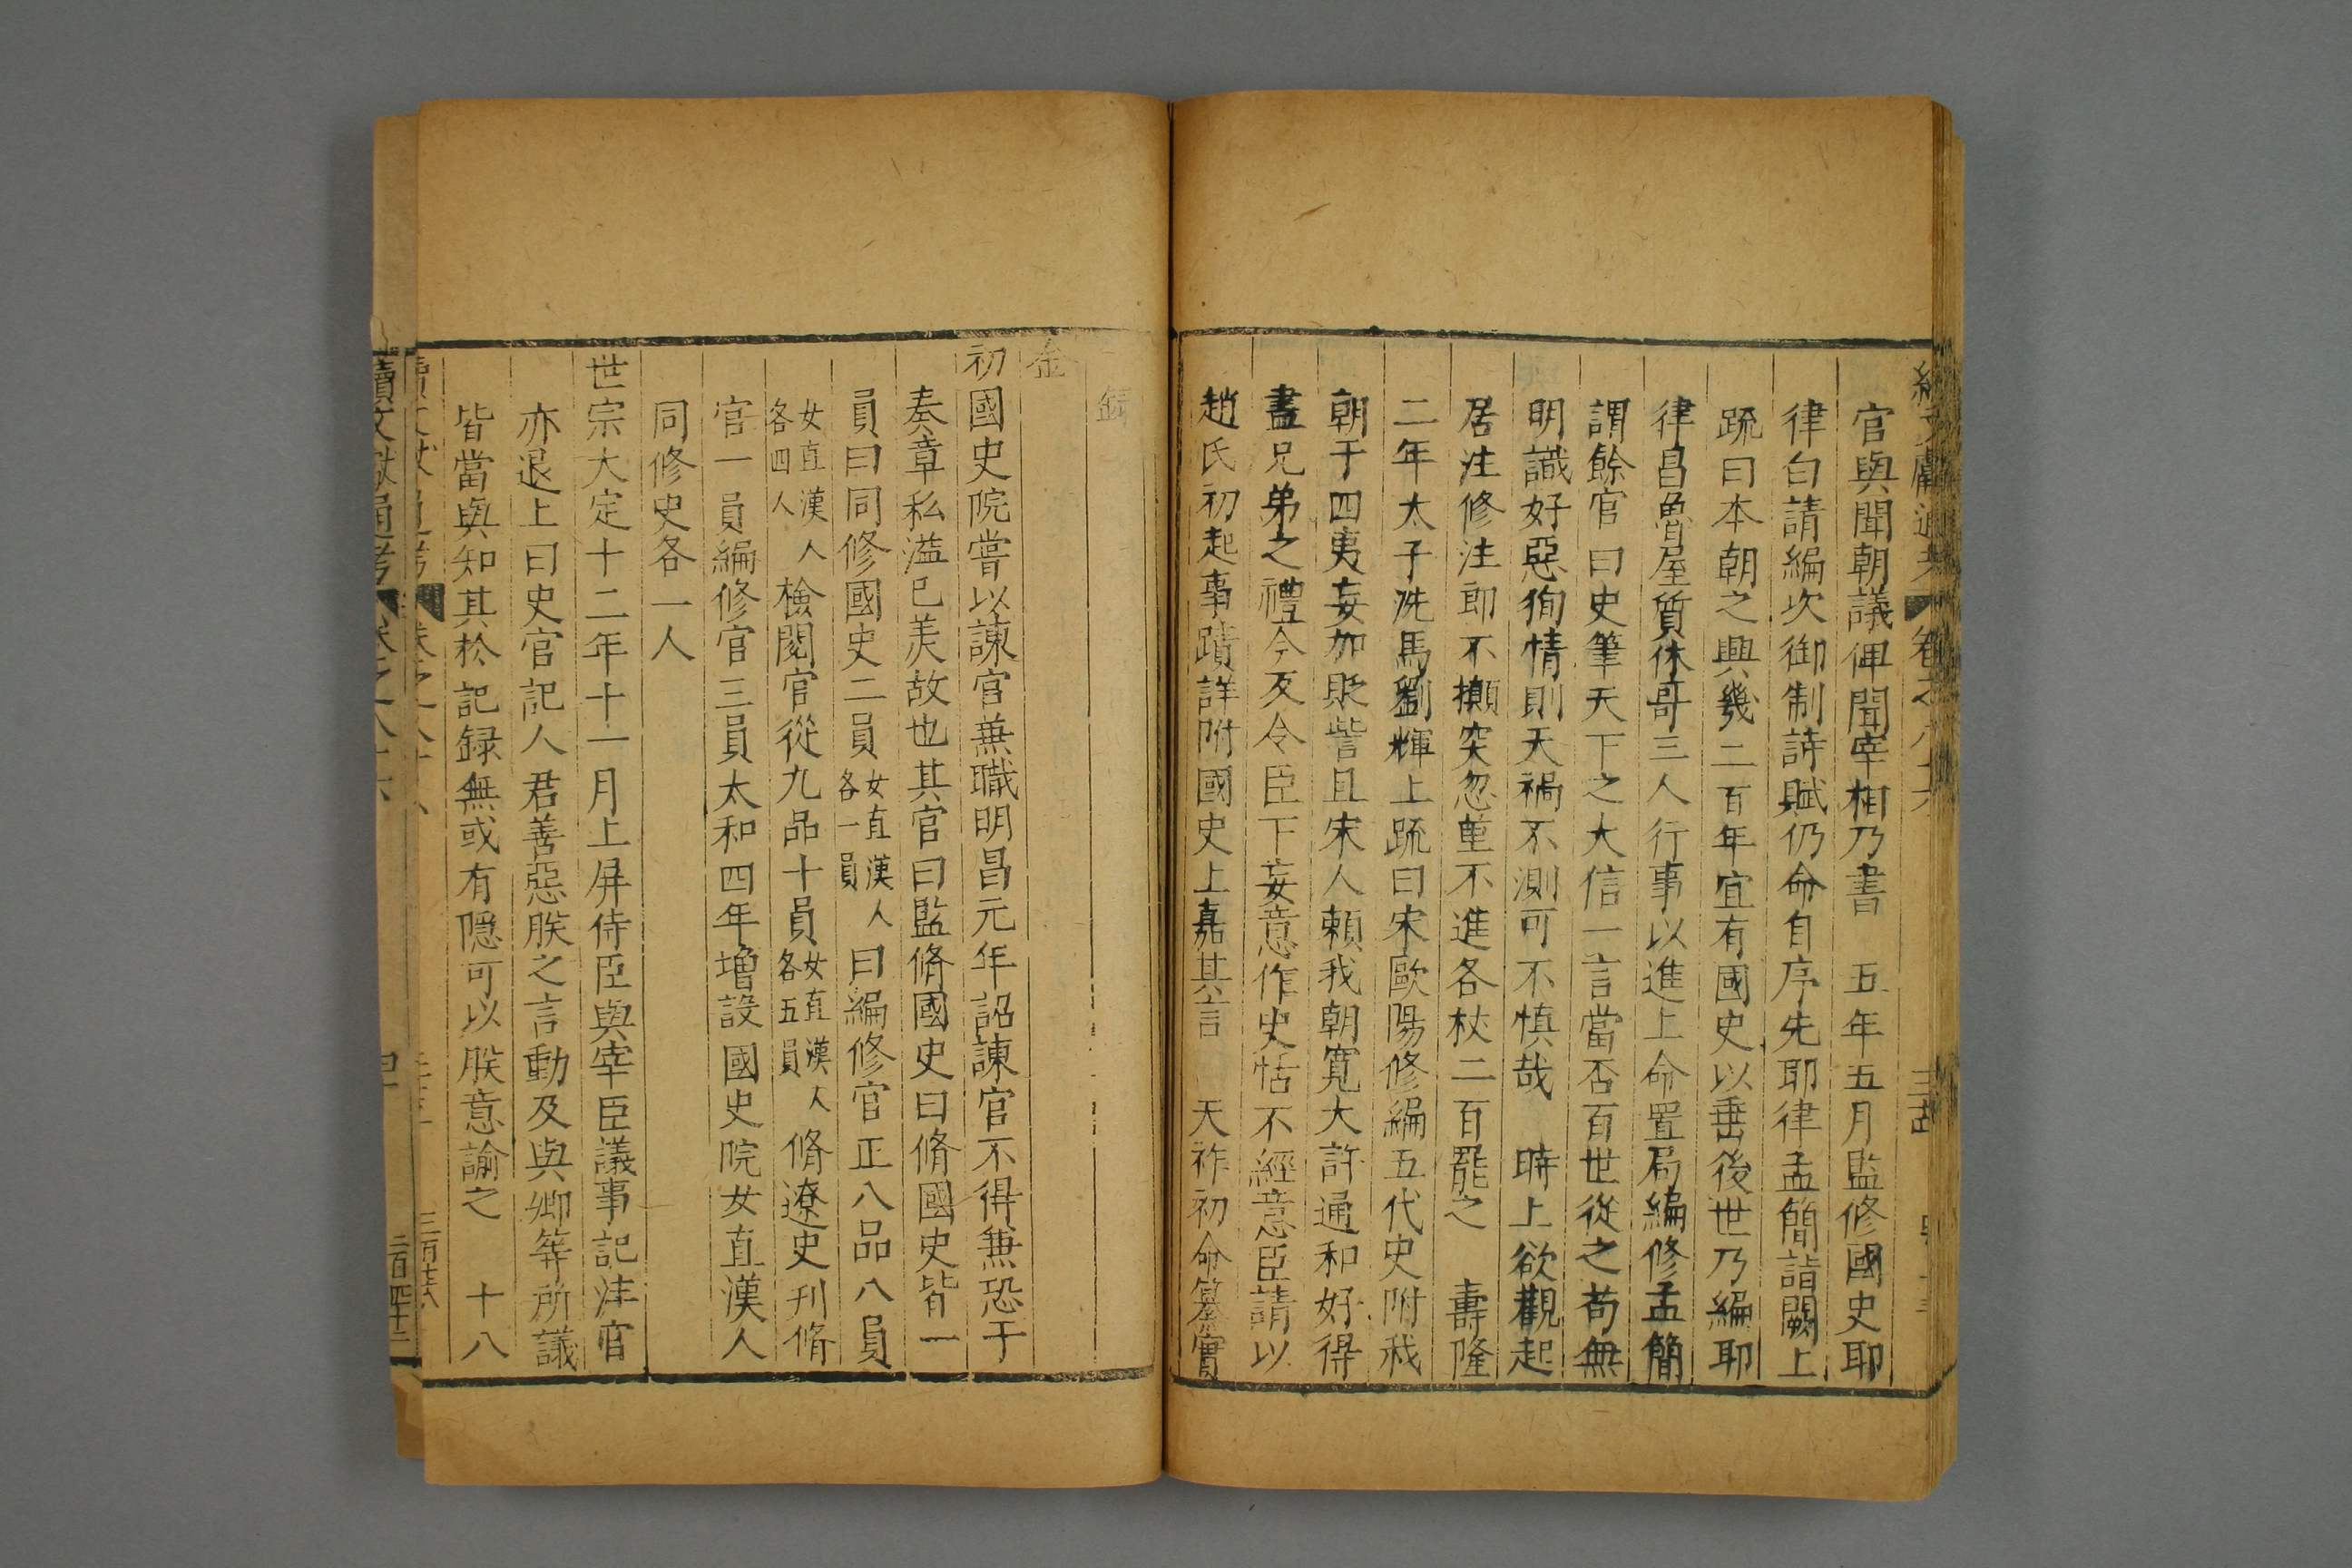 官與聞朝議俾聞宰相乃書　五年五月監修國史耶
律白請編次御制詩賦仍命白序先耶律孟簡詣闕上
疏曰本朝之興幾二百年宜有國史以垂後世乃編耶
律曷魯屋質休哥三人行事以進上命置局編修孟簡
謂餘官曰史筆天下之大信一言當否百世從之苟無
明識好惡徇情則天禍不測可不慎哉　時上欲觀起
居注修注郎不攧突忽堇不進各杖二百罷之　壽隆
二年太子洗馬劉輝上疏曰宋歐陽修編五代史附我
朝于四夷妄加貶訾且宋人賴我朝寬大許通和好得
盡兄弟之禮今反令臣下妄意作史恬不經意臣請以
趙氏初起事蹟詳附國史上嘉其言　天祚初命纂實
錄
金
初國史院嘗以諫官兼職明昌元年詔諫官不得兼恐于
奏章私溢已美故也其官曰監脩國史曰脩國史皆一
員曰同修國史二員女直漢人各一員曰編修官正八品八員
女直漢人各四人檢閱官從九品十員女直漢人各五員脩遼史刊脩
官一員編修官三員太和四年增設國史院女直漢人
同修史各一人
世宗大定十二年十一月上屏侍臣與宰臣議事記注官
亦退上曰史官記人君善惡朕之言動及與卿等所議
皆當與知其於記録無或有隱可以朕意諭之　十八
續文獻通考
二百四十二